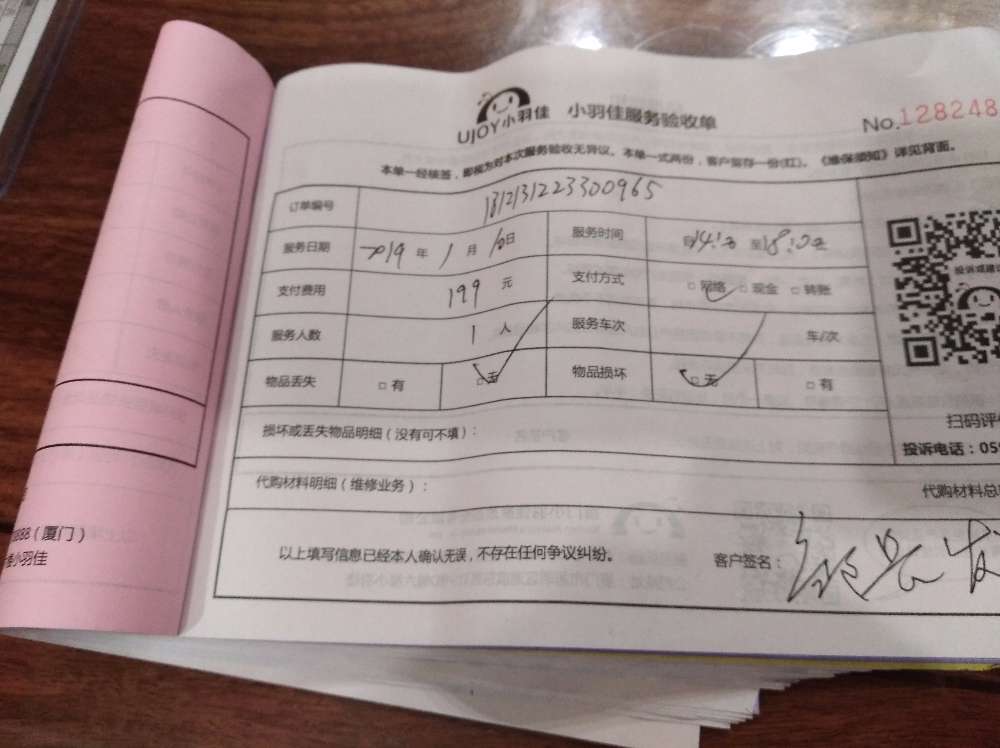 UJOY小羽佳 小羽佳服务验收单
No.128248
本单一经核签，即视为对本次服务验收无异议。本单一式两份，客户留存一份(红)。《维保须知》详见背面。
订单编号
服务日期 2019 年 1 月 10 日 服务时间 自14:00 至18:00
支付费用 199 元 支付方式 □ 网络 □ 现金 □ 转账
服务人数 1 人 服务车次 车/次
物品丢失 □ 有 □ 无 物品损坏 □ 无 □ 有
损坏或丢失物品明细（没有可不填）：
扫码评
投诉电话：05
代购材料明细（维修业务）： 代购材料总
以上填写信息已经本人确认无误，不存在任何争议纠纷。 客户签名：
88（厦门）
小羽佳